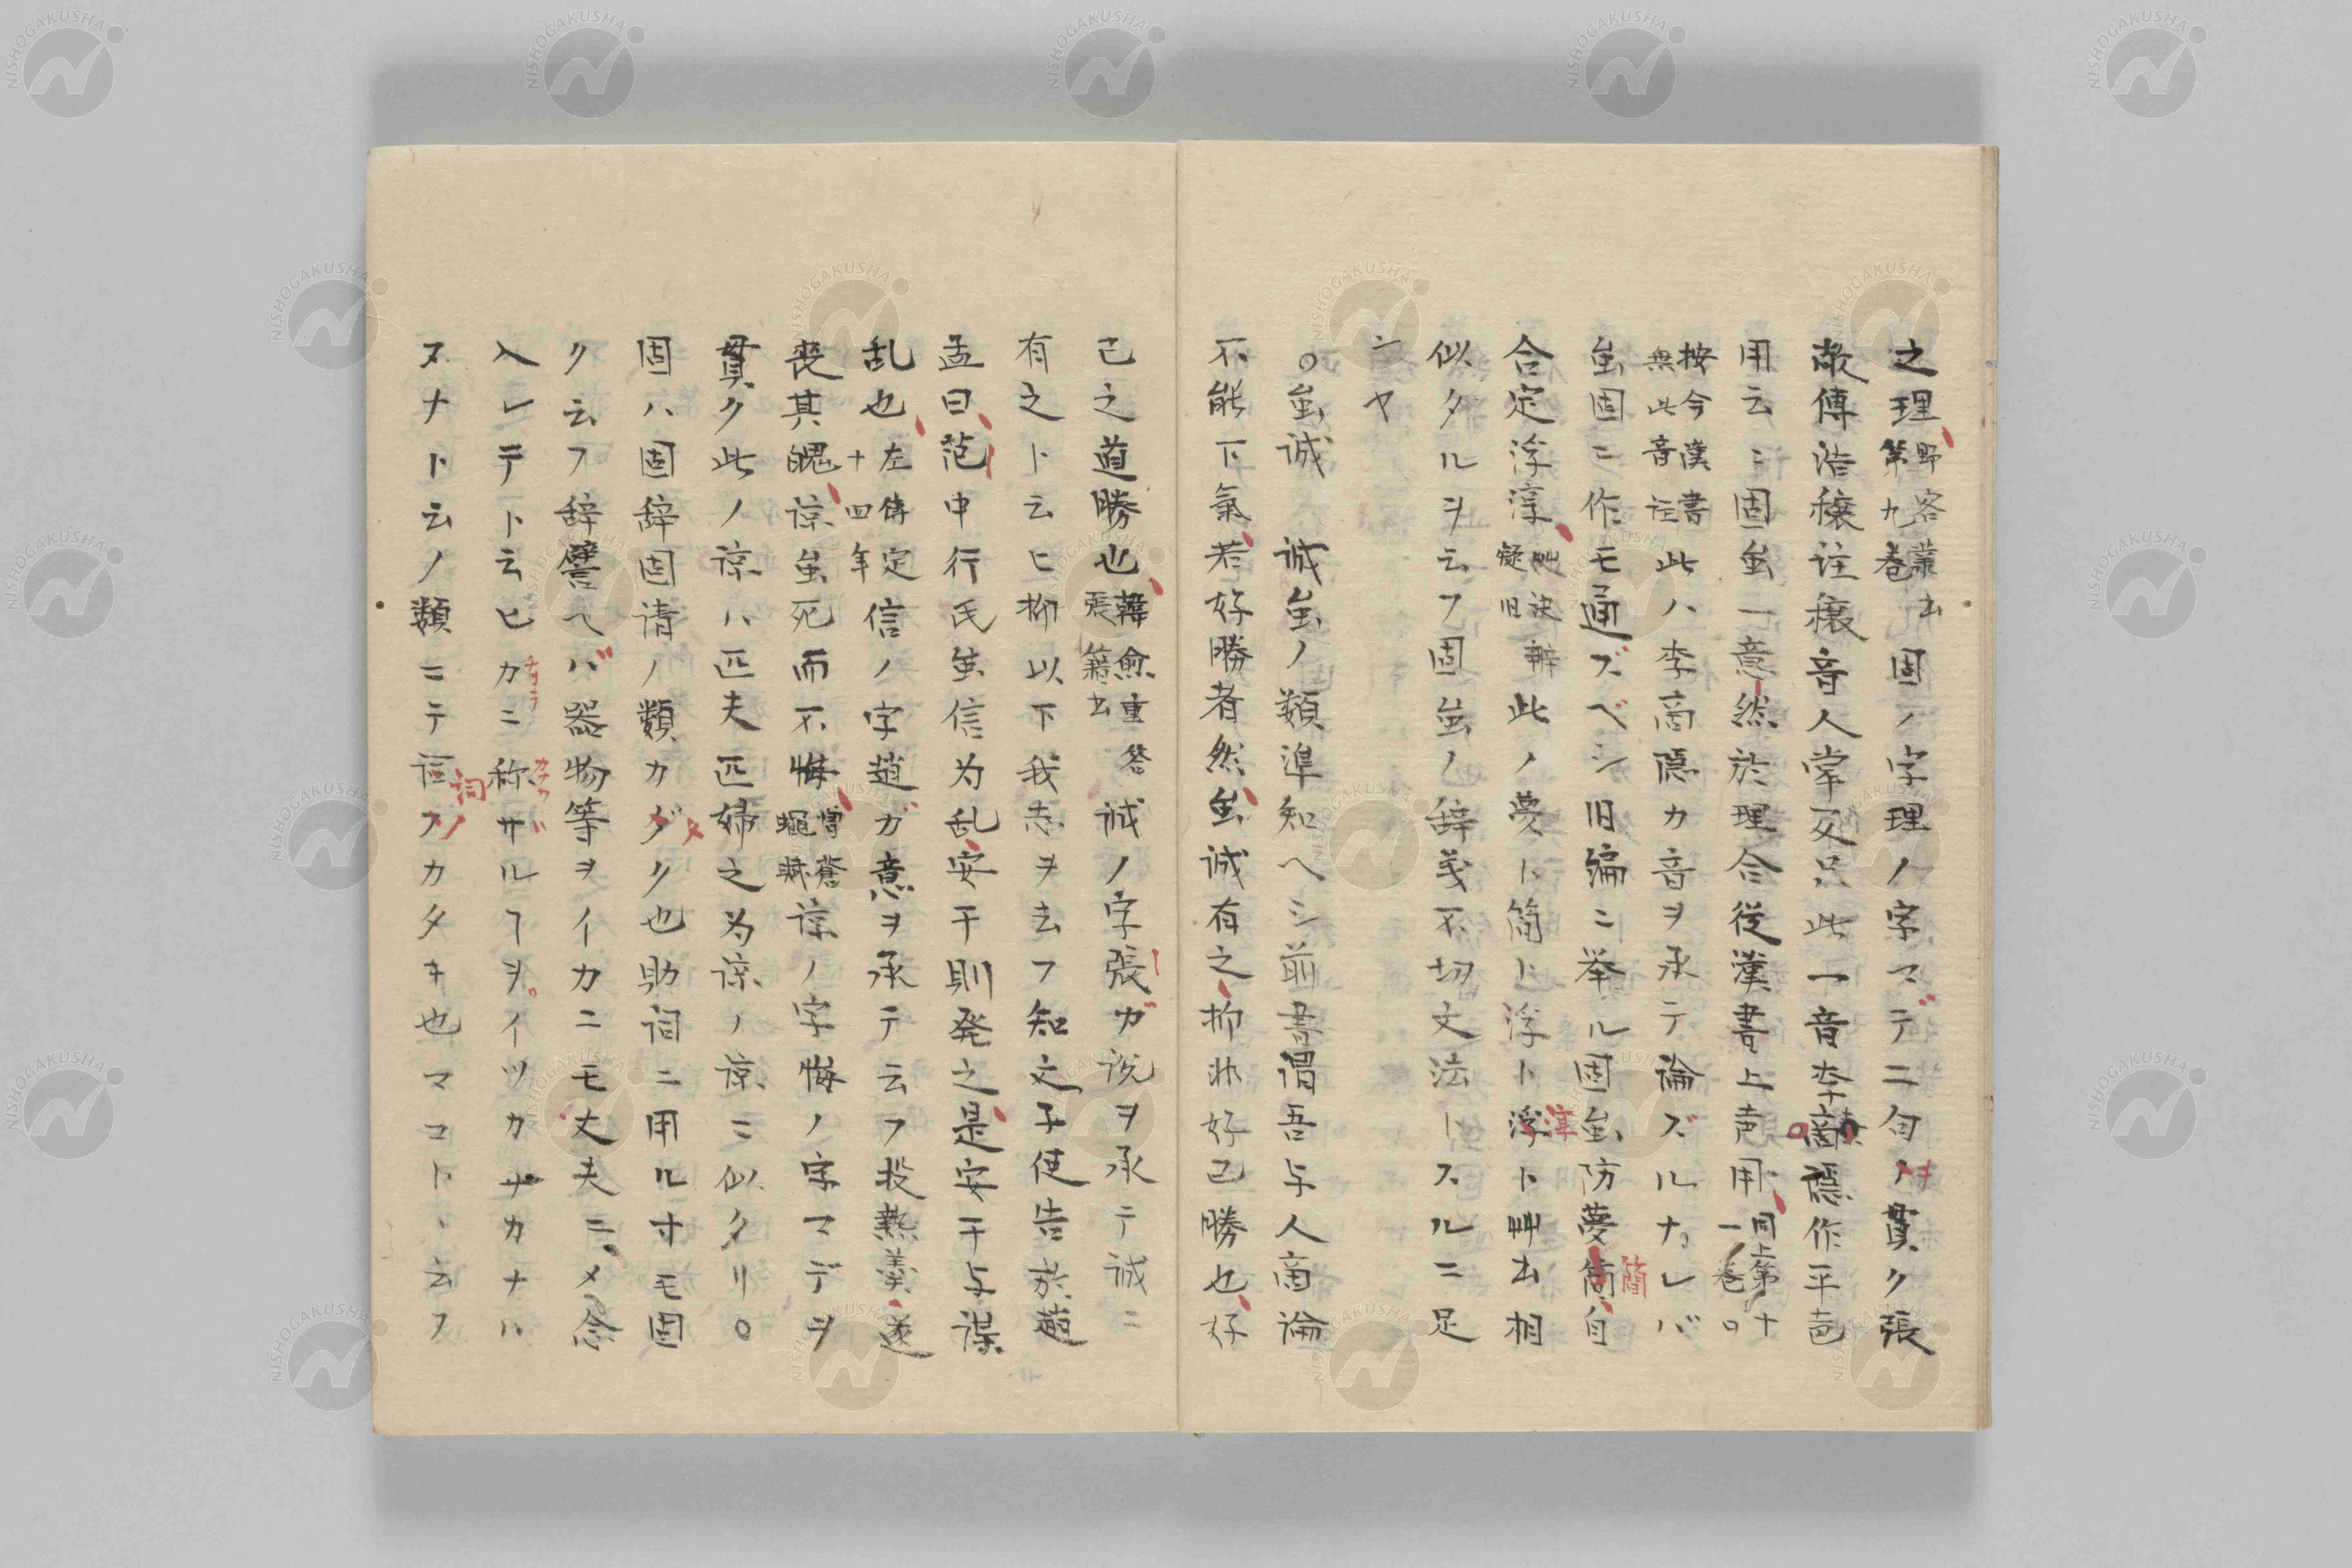 之理野客叢書第九巻出固ノ字理ノ字マデニ句ノヲ貫ク張
敞傳浩穣註穣音人掌反只此一音李商隠作平声
用云ニ固虽一意然於理合從漢書上声用同上第十一巻○
按今漢書無此音註此ハ李商隠カ音ヲ承テ論ズルナレバ
虽固ニ作モ通ズベシ旧編ニ挙ル固虽防夢簡簡自
合定浮淳艸決辨疑旧此ノ夢ト簡ト浮ト浮淳ト艸出相
似タルヲ云フ固虽ノ辞義不切文法トスルニ足
ンヤ
○虽誠 誠虽ノ類準知ヘシ前書謂吾与人商論
不能下氣若好勝者然虽誠有之抑非好己勝也好
己之道勝也韓愈重答張籍書誠ノ字張ガ説ヲ承テ誠ニ
有之ト云ヒ抑以下我志ヲ云フ知文子使告於趙
孟曰范中行氏虽信为乱安于則発之是安于与謀
乱也左傳定十四年信ノ字趙ガ意ヲ承テ云フ投熱羹遂
喪其魄諒虽死而不悔憎蒼蠅賦諒ノ字悔ノ字マデヲ
貫ク此ノ諒ハ匹夫匹婦之为諒ノ諒ニ似タリ○
固ハ固辞固请ノ類カダタク也助詞ニ用ル寸モ固
ク云フ辞譬ヘバ器物等ヲイカニモ丈夫ニメ念
入レテト云ヒカニ称サルヿヲイツカサカナハ
ヌナト云ノ類ニテ詞フカタキ也マコトヽ云フ
NISHOGAKUSHA